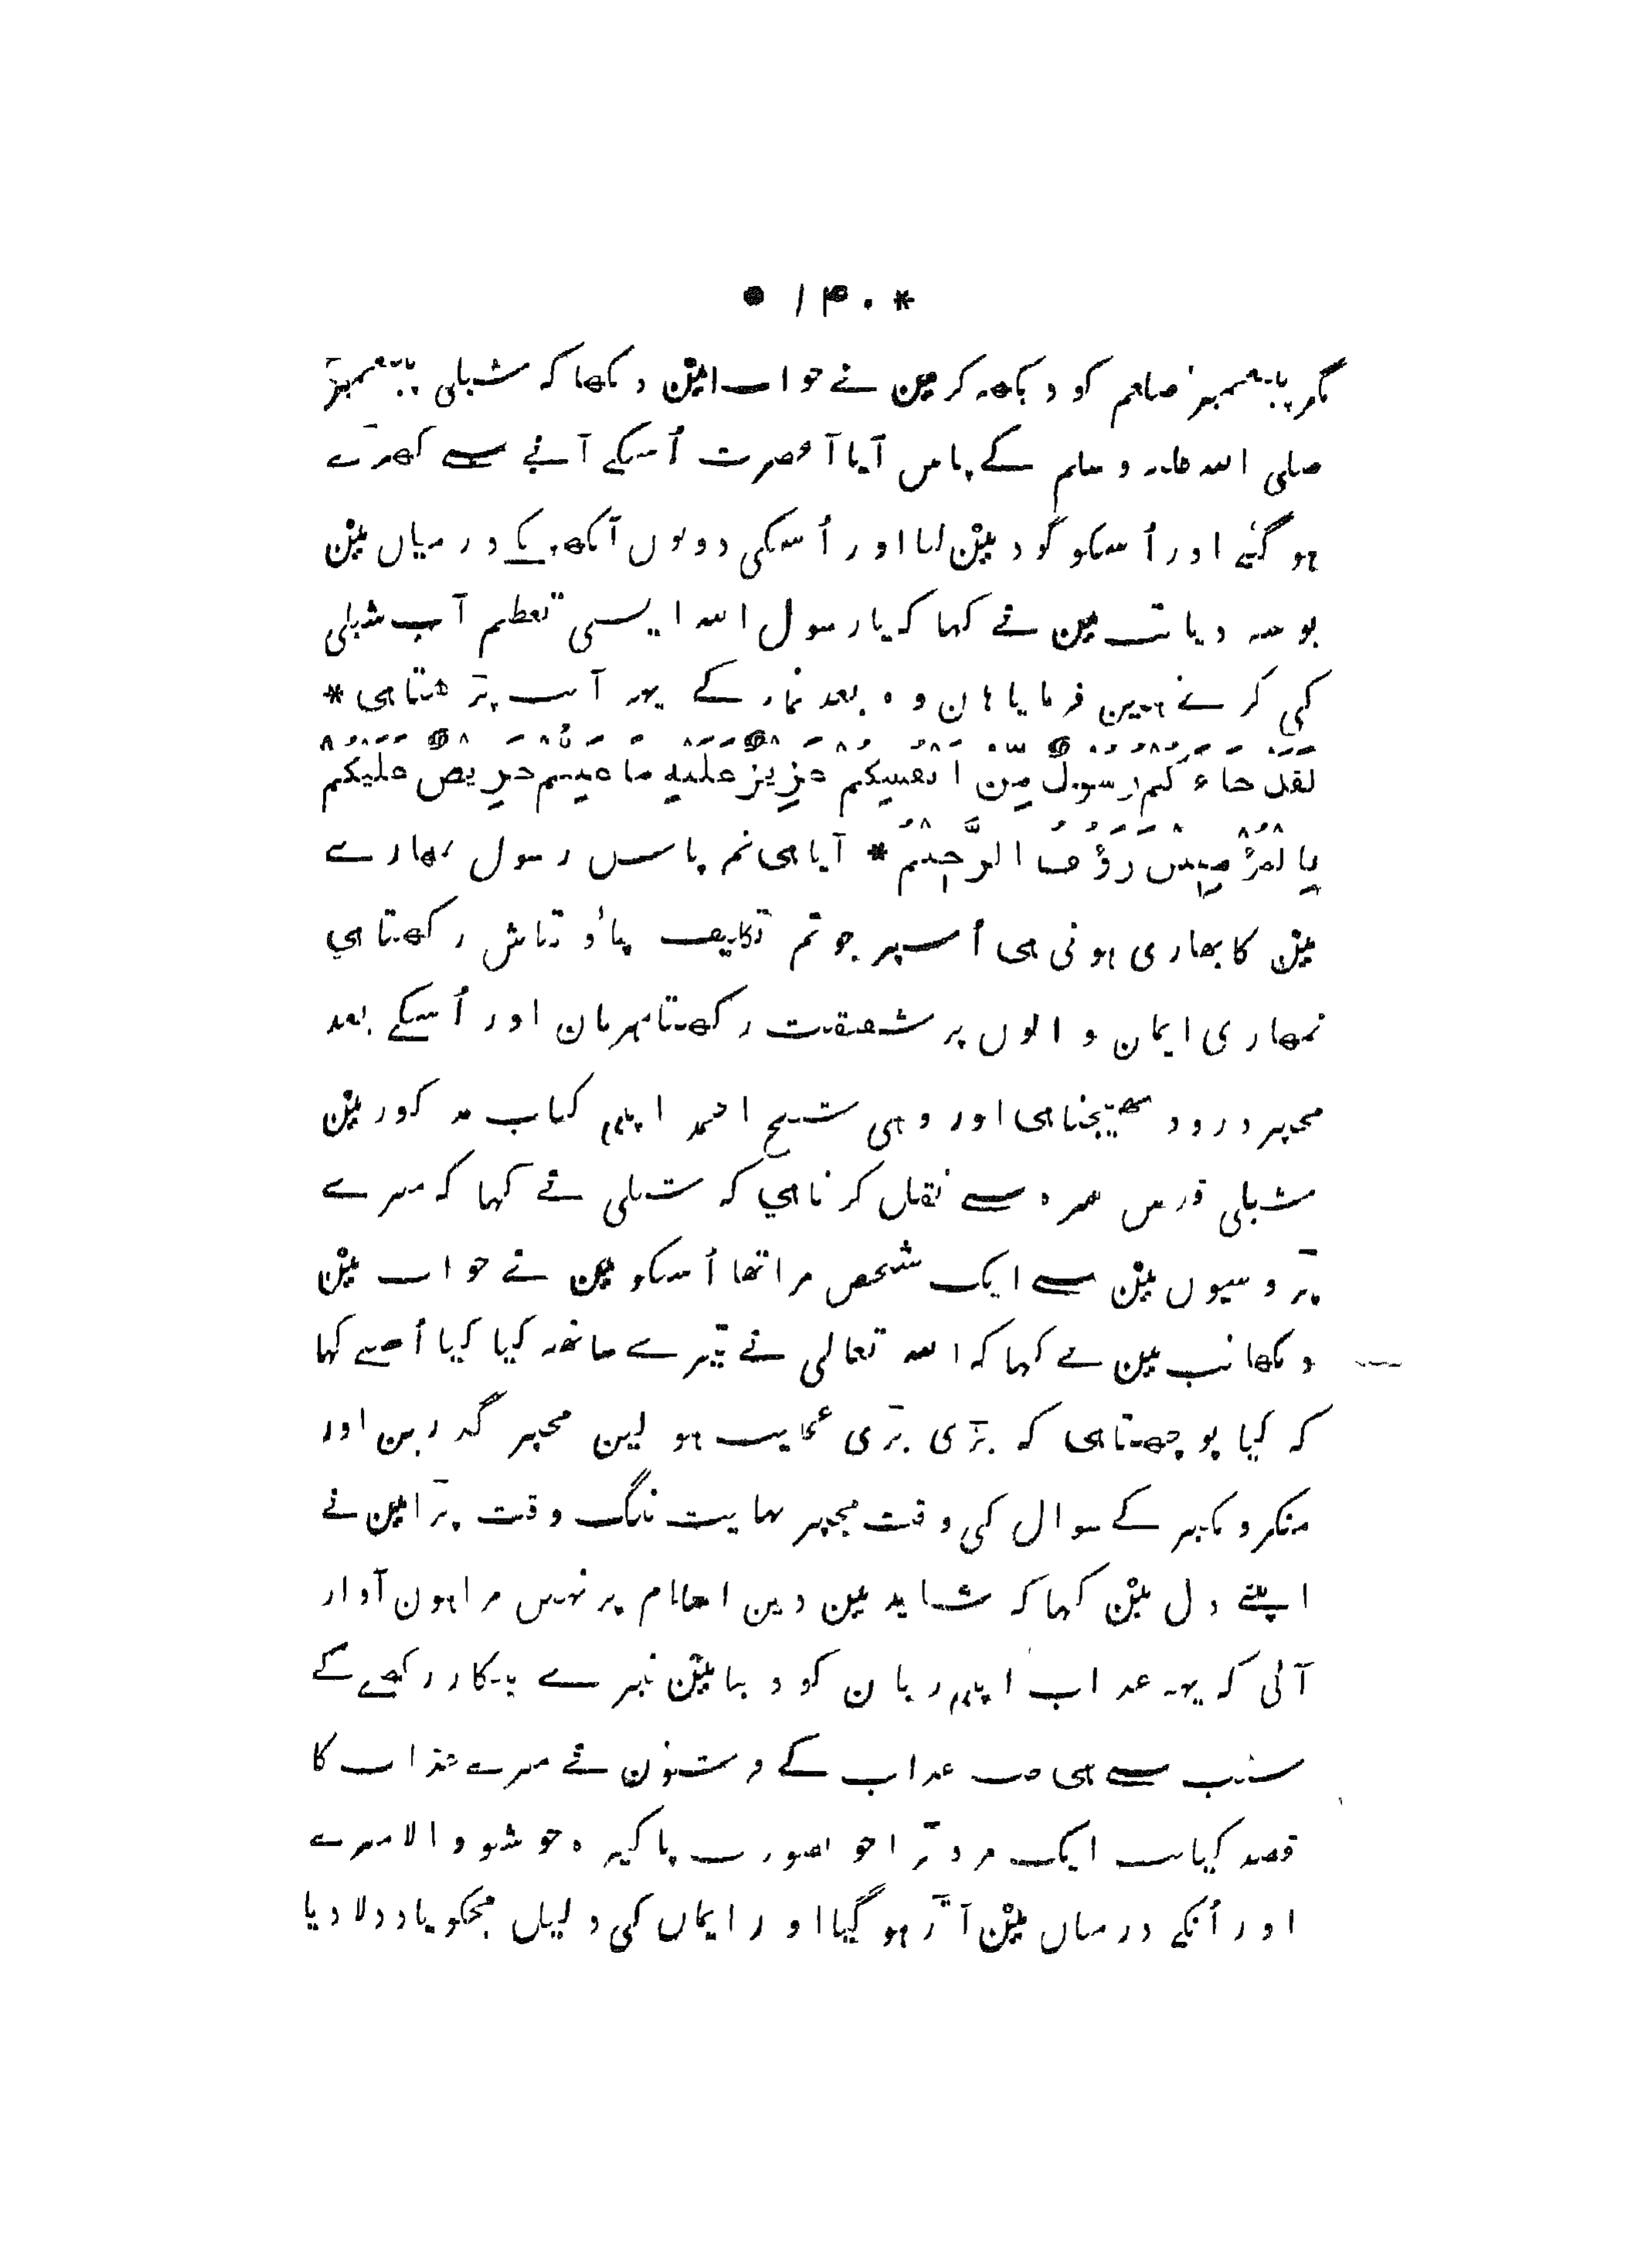 * ۱۴۰ *
مگر پیغمبر صلعم کو دیکھہ کر مین نے خواب مین دیکھا کہ شبلی پیغمبر
صلی اللہ علیہ و سلم کے پاس آیا آنحضرت اُسکے آنے سے کھرے
ہو گئے اور اُسکو گود مین لیا اور اُسکی دونوں آنکھہ کے درمیاں مین
بوسہ دیا تب مین نے کہا کہ یا رسول اللہ ایسی تعظیم آپ شبلی
کی کرتے ہین فرمایا ہان وہ بعد نماز کے یہہ آیت پڑھتا ہی *
لَقَدْ جَاءَكُمْ رَسُولٌ مِّنْ اَنْفُسِكُمْ عَزِيزٌ عَلَيْهِ مَا عَنِتُّمْ حَرِيصٌ عَلَيْكُمْ
بِالْمُؤْمِنِينَ رَؤُفُ الرَّحِيْمُ * آیا ہی تم پاس رسول تمھارے
مین کا بھاری ہوتی ہی اُسپر جو تم تکلیف پاؤ تلاش رکھتا ہی
تمھاری ایمان والوں پر شفقت رکھتا مہربان اور اُسکے بعد
مجھپر درود بھیجتا ہی اور وہی شیخ احمد اپنی کتاب مذکور مین
شبلی قدس سرہ سے نقل کرتا ہی کہ شبلی نے کہا کہ میرے
پڑوسیوں مین سے ایک شخص مرا تھا اُسکو مین نے خواب مین
دیکھا تب مین نے کہا کہ اللہ تعالی نے تیرے ساتھہ کیا کیا اُسنے کہا
کہ کیا پوچھتا ہی کہ بڑی بڑی ہولین مجھپر گذرین اور
منکر و نکیر کے سوال کی وقت مجھپر نہایت تنگ وقت پڑا مین نے
اپنے دل مین کہا کہ شاید مین دین اسلام پر نہین مرا ہون آواز
آئی کہ یہہ عذاب اپنی زبان کو دنیا مین تیرے بیکار رکھنے کے
سبب سے ہی جب عذاب کے فرشتون نے میرے عذاب کا
قصد کیا تب ایک مرد بڑا خوبصورت پاکیزہ خوشبو والا میرے
اور اُنکے درمیاں مین آڑ ہو گیا اور ایماں کی دلیل مجھکو یاد دلا دیا